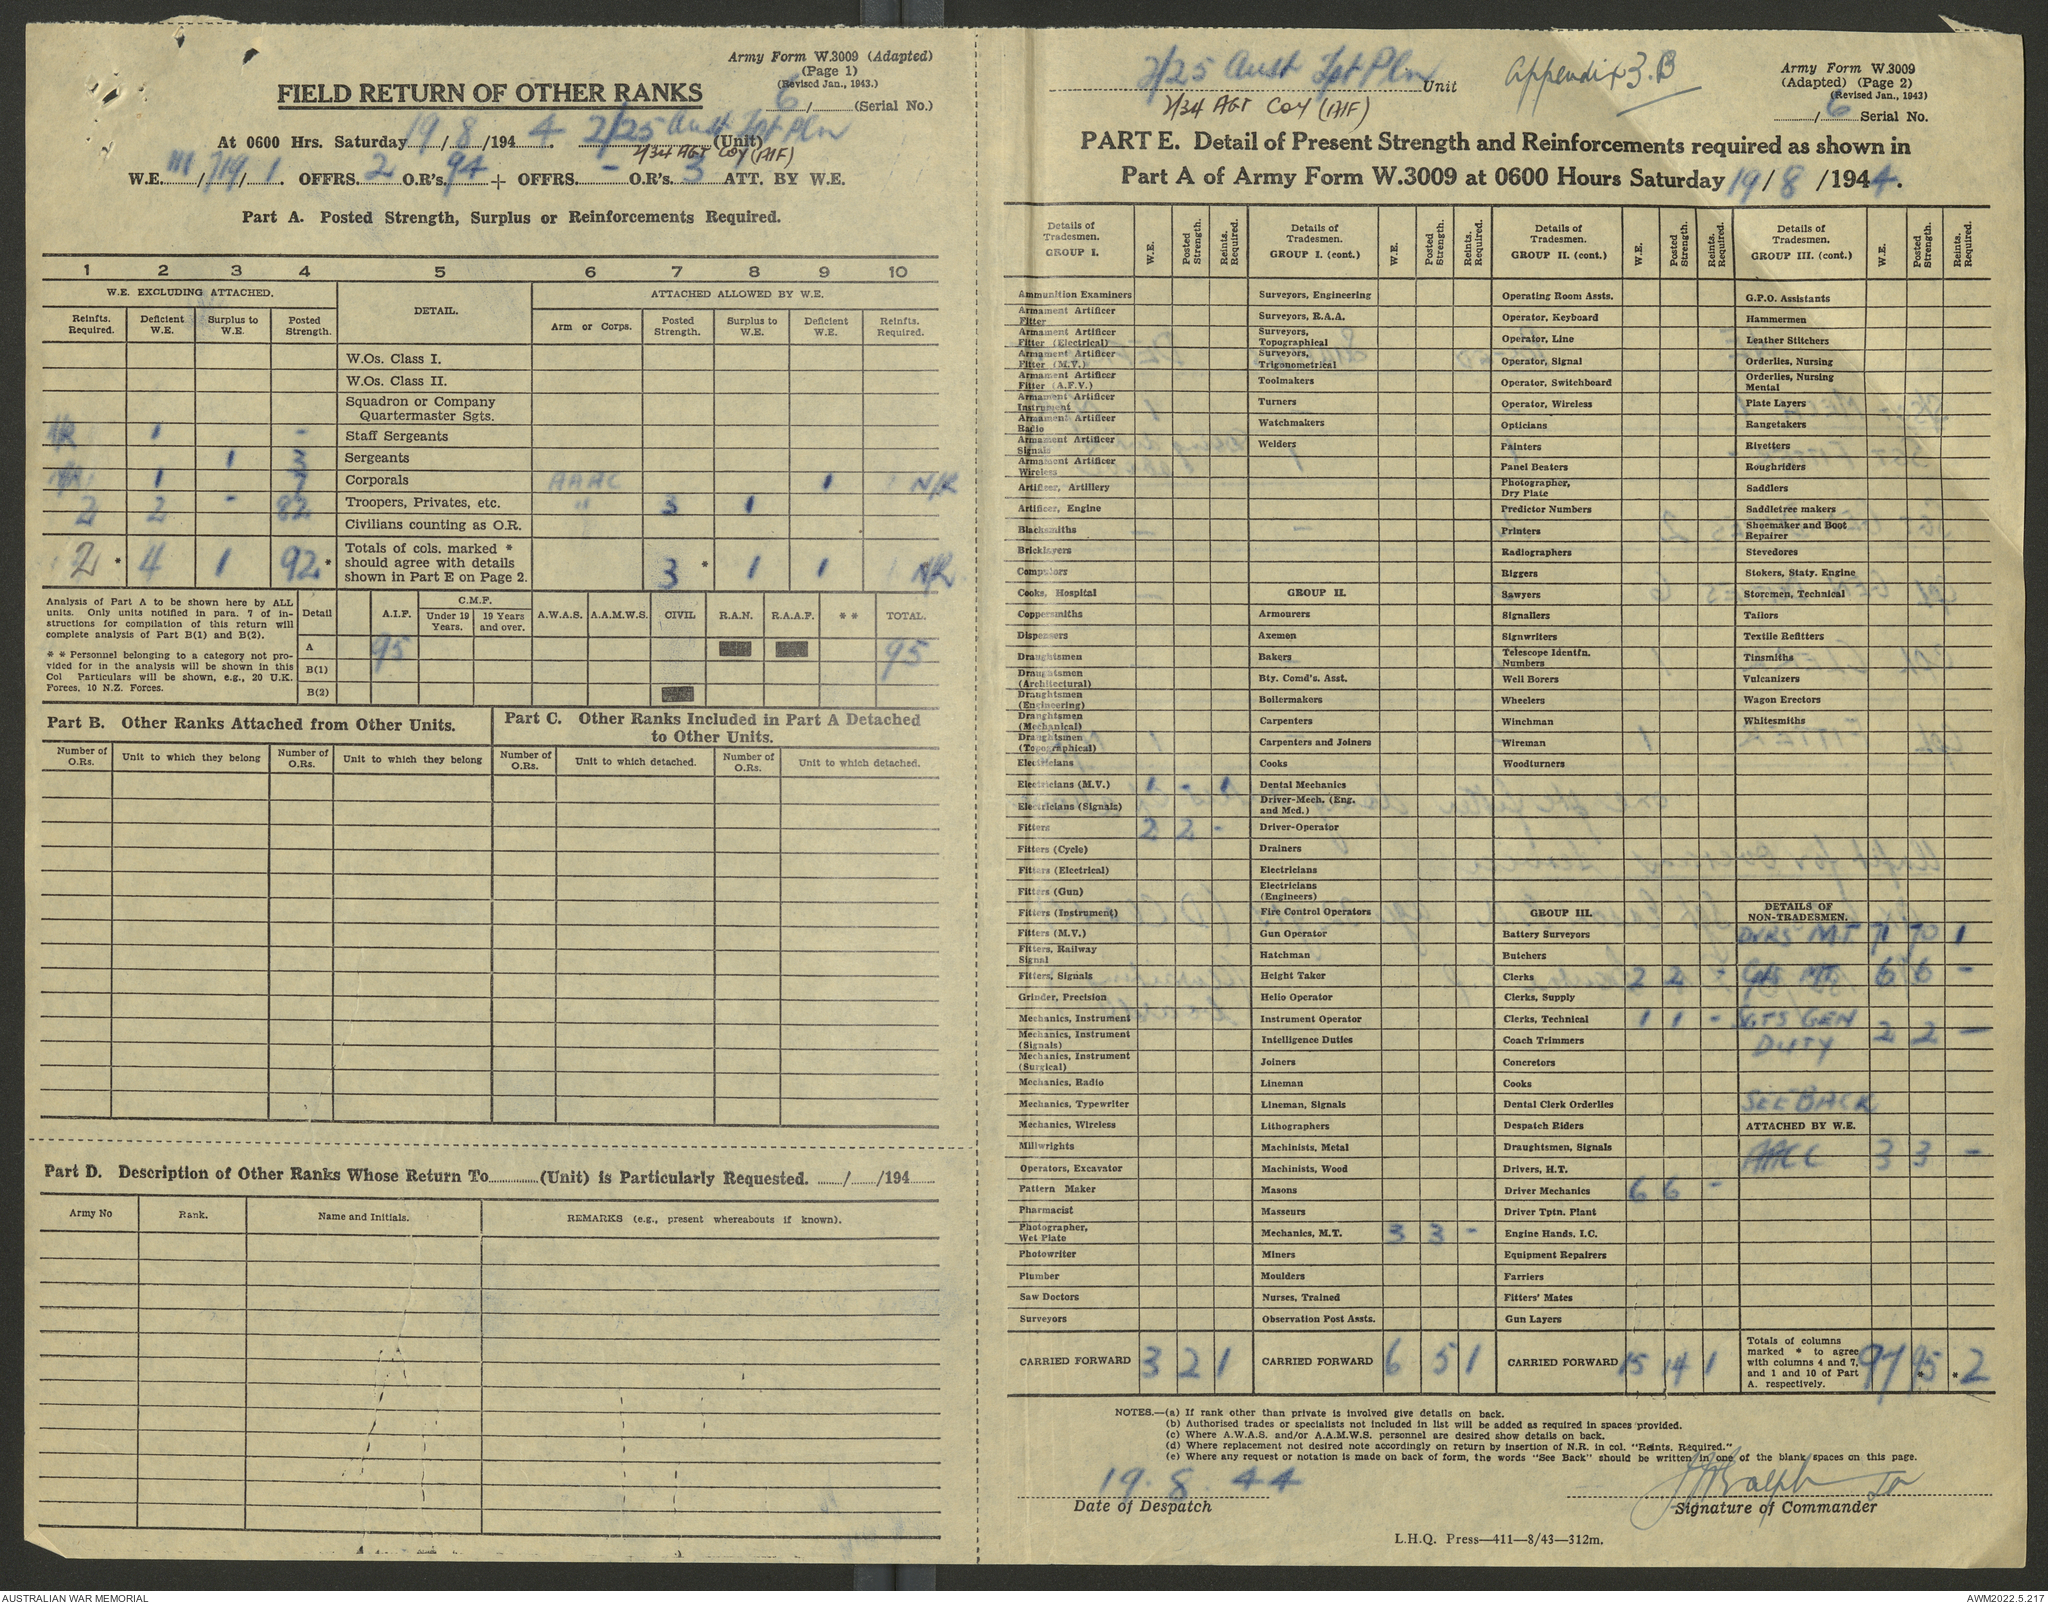 Army Form W.3009 (Adapted)
(Page 1)
(Revised Jan., 1943.)
FIELD RETURN OF OTHER RANKS
6/ (Serial No.)
At 0600 Hrs. Saturday 19/8/1944. 2/25 Aust Tpt Pln (Unit)
2/34 AGT Coy (AIF)
W.E. III/719/1. OFFRS. 2 O.R's. 94 + OFFRS. - O.R's. 3 ATT. BY W.E.
Part A. Posted Strength, Surplus or Reinforcements Required.
1 2 3 4 5 6 7 8 9 10
W.E. EXCLUDING ATTACHED. DETAIL. ATTACHED ALLOWED BY W.E.
Reinfts. Required. Deficient W.E. Surplus to W.E. Posted Strength. Arm or Corps. Posted Strength. Surplus to W.E. Deficient W.E. Reinfts. Required.
W.Os. Class I.
W.Os. Class II.
Squadron or Company Quartermaster Sgts.
1 - Staff Sergeants
1 3 Sergeants
1 7 Corporals AAAC 1 N/R
2 2 - 82 Troopers, Privates, etc. " 3 1
Civilians counting as O.R.
2 * 4 1 92 * Totals of cols. marked * should agree with details shown in Part E on Page 2. 3 * 1 1 N/R
Analysis of Part A to be shown here by ALL units. Only units notified in para. 7 of instructions for compilation of this return will complete analysis of Part B(1) and B(2).
* * Personnel belonging to a category not provided for in the analysis will be shown in this Col Particulars will be shown, e.g., 20 U.K. Forces, 10 N.Z. Forces.
Detail A.I.F. C.M.F. Under 19 Years. 19 Years and over. A.W.A.S. A.A.M.W.S. CIVIL R.A.N. R.A.A.F. * * TOTAL.
A 95 95
B(1)
B(2)
Part B. Other Ranks Attached from Other Units.
Part C. Other Ranks Included in Part A Detached to Other Units.
Number of O.Rs. Unit to which they belong Number of O.Rs. Unit to which they belong Number of O.Rs. Unit to which detached. Number of O.Rs. Unit to which detached.
Part D. Description of Other Ranks Whose Return To (Unit) is Particularly Requested. / /194
Army No Rank. Name and Initials. REMARKS (e.g., present whereabouts if known).
2/25 Aust Tpt Pln Unit
2/34 AGT Coy (AIF)
Appendix 3.B
Army Form W.3009
(Adapted) (Page 2)
(Revised Jan., 1943)
/6 Serial No.
PART E. Detail of Present Strength and Reinforcements required as shown in
Part A of Army Form W.3009 at 0600 Hours Saturday 19/8/1944.
Details of Tradesmen. GROUP I. W.E. Posted Strength. Reints. Required.
Ammunition Examiners
Armament Artificer Fitter
Armament Artificer Fitter (Electrical)
Armament Artificer Fitter (M.V.)
Armament Artificer Fitter (A.F.V.)
Armament Artificer Instrument
Armament Artificer Radio
Armament Artificer Signals
Armament Artificer Wireless
Artificer, Artillery
Artificer, Engine
Blacksmiths
Bricklayers
Computors
Cooks, Hospital
Coppersmiths
Dispensers
Draughtsmen
Draughtsmen (Architectural)
Draughtsmen (Engineering)
Draughtsmen (Mechanical)
Draughtsmen (Topographical)
Electricians
Electricians (M.V.) 1 - 1
Electricians (Signals)
Fitters 2 2 -
Fitters (Cycle)
Fitters (Electrical)
Fitters (Gun)
Fitters (Instrument)
Fitters (M.V.)
Fitters, Railway Signal
Fitters, Signals
Grinder, Precision
Mechanics, Instrument
Mechanics, Instrument (Signals)
Mechanics, Instrument (Surgical)
Mechanics, Radio
Mechanics, Typewriter
Mechanics, Wireless
Millwrights
Operators, Excavator
Pattern Maker
Pharmacist
Photographer, Wet Plate
Photowriter
Plumber
Saw Doctors
Surveyors
CARRIED FORWARD 3 2 1
Details of Tradesmen. GROUP I. (cont.) W.E. Posted Strength. Reints. Required.
Surveyors, Engineering
Surveyors, R.A.A.
Surveyors, Topographical
Surveyors, Trigonometrical
Toolmakers
Turners
Watchmakers
Welders
GROUP II.
Armourers
Axemen
Bakers
Bty. Comd's. Asst.
Boilermakers
Carpenters
Carpenters and Joiners
Cooks
Dental Mechanics
Driver-Mech. (Eng. and Mcd.)
Driver-Operator
Drainers
Electricians
Electricians (Engineers)
Fire Control Operators
Gun Operator
Hatchman
Height Taker
Helio Operator
Instrument Operator
Intelligence Duties
Joiners
Lineman
Lineman, Signals
Lithographers
Machinists, Metal
Machinists, Wood
Masons
Masseurs
Mechanics, M.T. 3 3 -
Miners
Moulders
Nurses, Trained
Observation Post Assts.
CARRIED FORWARD 6 5 1
Details of Tradesmen. GROUP II. (cont.) W.E. Posted Strength. Reints. Required.
Operating Room Assts.
Operator, Keyboard
Operator, Line
Operator, Signal
Operator, Switchboard
Operator, Wireless
Opticians
Painters
Panel Beaters
Photographer, Dry Plate
Predictor Numbers
Printers
Radiographers
Riggers
Sawyers
Signallers
Signwriters
Telescope Identfn. Numbers
Well Borers
Wheelers
Winchman
Wireman
Woodturners
GROUP III.
Battery Surveyors
Butchers
Clerks 2 2 -
Clerks, Supply
Clerks, Technical 1 1 -
Coach Trimmers
Concretors
Cooks
Dental Clerk Orderlies
Despatch Riders
Draughtsmen, Signals
Drivers, H.T.
Driver Mechanics 6 6 -
Driver Tptn. Plant
Engine Hands. I.C.
Equipment Repairers
Farriers
Fitters' Mates
Gun Layers
CARRIED FORWARD 15 14 1
Details of Tradesmen. GROUP III. (cont.) W.E. Posted Strength. Reints. Required.
G.P.O. Assistants
Hammermen
Leather Stitchers
Orderlies, Nursing
Orderlies, Nursing Mental
Plate Layers
Rangetakers
Rivetters
Roughriders
Saddlers
Saddletree makers
Shoemaker and Boot Repairer
Stevedores
Stokers, Staty. Engine
Storemen, Technical
Tailors
Textile Refitters
Tinsmiths
Vulcanizers
Wagon Erectors
Whitesmiths
DETAILS OF NON-TRADESMEN.
DVRS M.T. 71 70 1
Cpls MT. 6 6 -
SGTS GEN DUTY 2 2 -
SEE BACK
ATTACHED BY W.E.
AACC 3 3 -
Totals of columns marked * to agree with columns 4 and 7, and 1 and 10 of Part A. respectively. 97 95 * * 2
NOTES.—(a) If rank other than private is involved give details on back.
(b) Authorised trades or specialists not included in list will be added as required in spaces provided.
(c) Where A.W.A.S. and/or A.A.M.W.S. personnel are desired show details on back.
(d) Where replacement not desired note accordingly on return by insertion of N.R. in col. "Reints. Required."
(e) Where any request or notation is made on back of form, the words "See Back" should be written in one of the blank spaces on this page.
19.8.44
Date of Despatch
Signature of Commander
L.H.Q. Press—411—8/43—312m.
AUSTRALIAN WAR MEMORIAL
AWM2022.5.217